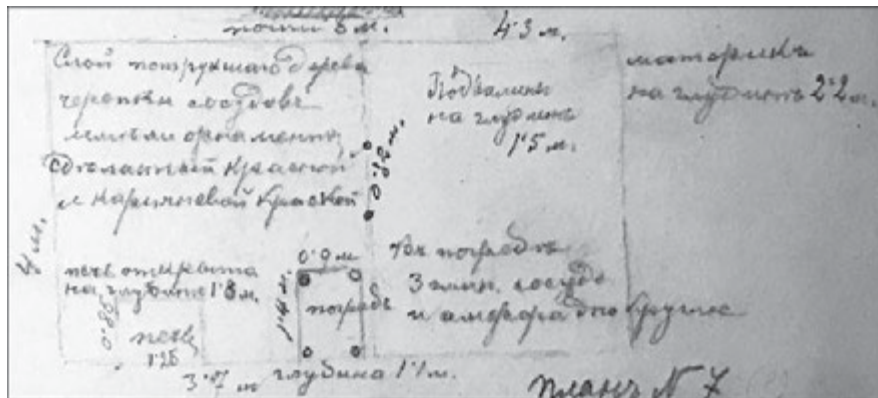 почти 3 м.
4·3 м.
Слой потрухшаго дерева
черепки сосудовъ
орнаментъ
сдѣланный красной
и коричневой краской
Подвалины
на глубинѣ
1·5 м.
материкъ
на глубинѣ 2·2 м.
0·82 м.
4 м.
печь открыта
на глубинѣ 1·8 м.
0·85
печь
1·25
0·9 м
1·4 м.
погребъ
Въ погребѣ
3 глин. сосуда
и амфора дно круглое
3·7 м
глубина 1·1 м.
Планъ N 7